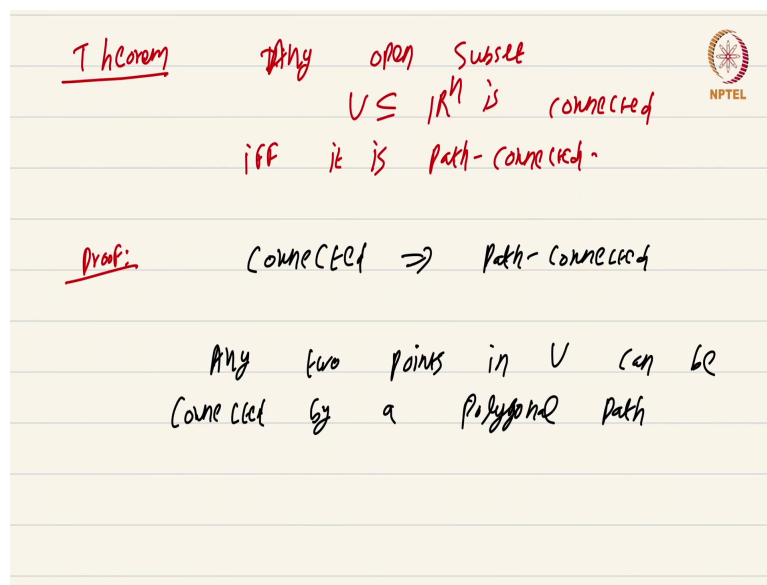 Theorem Any open Subset
U ⊆ ℝⁿ is connected
iff it is Path-connected.
NPTEL
Proof: Connected ⇒ Path-connected
Any two points in U can be
connected by a polygonal path